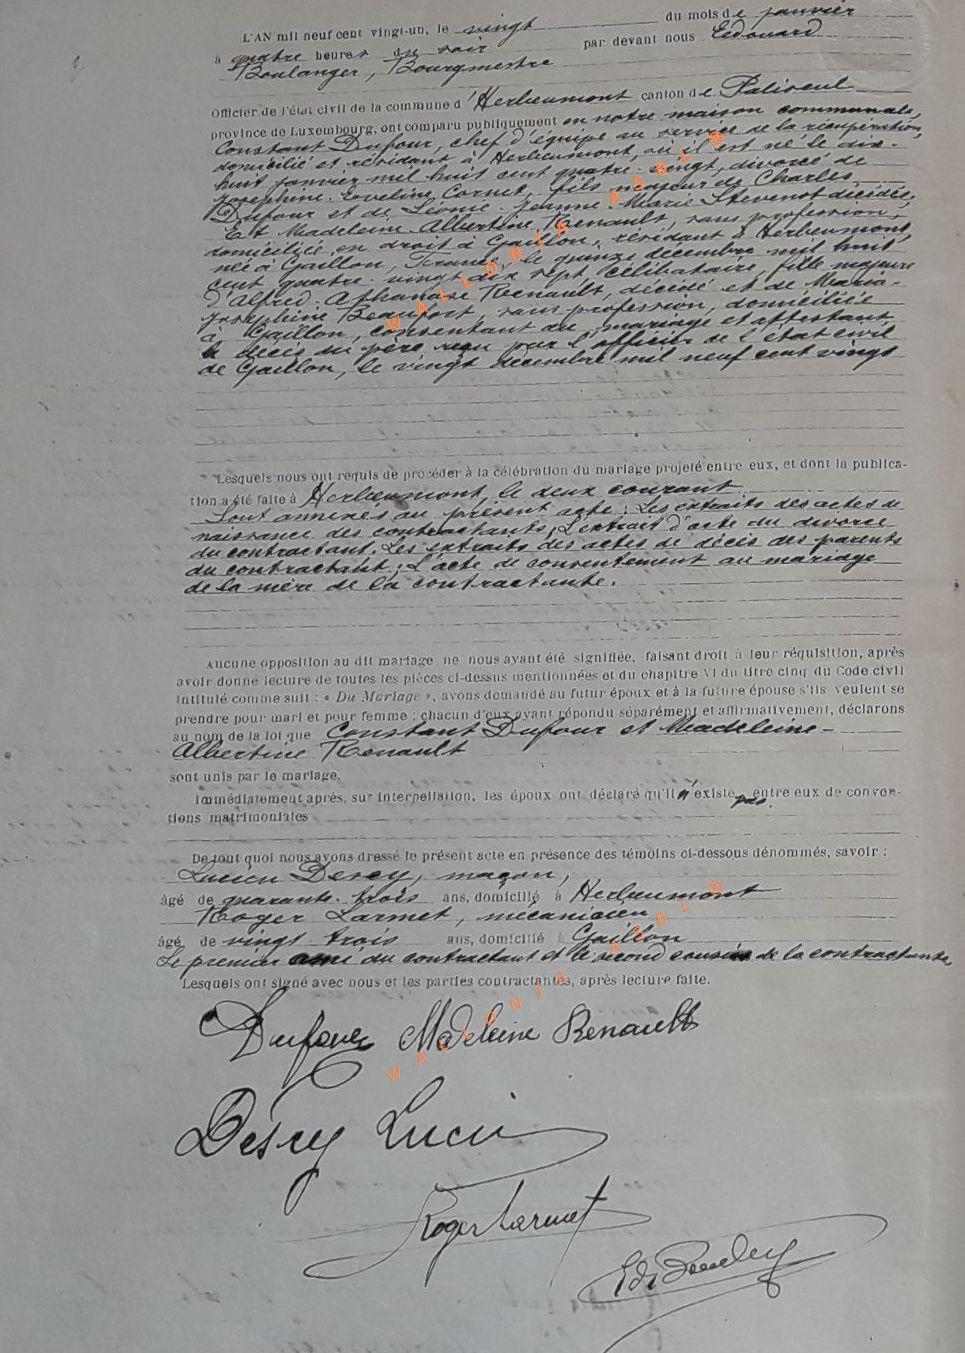 L'AN mil neuf cent vingt-un, le vingt du mois de janvier
à quatre heures du soir par devant nous Edouard
Boulanger, Bourgmestre
Officier de l'état civil de la commune d'Herbeumont canton de Paliseul
province de Luxembourg, ont comparu publiquement en notre maison communale,
Constant Dufour, chef d'équipe au service de la récupération,
domicilié et résidant à Herbeumont, où il est né le dix-
huit janvier mil huit cent quatre-vingt, divorcé de
Joséphine-Eveline Cornet, fils majeur de Charles
Dufour et de Léonie-Jeanne-Marie Stevenot décédés,
Et Madeleine Albertine Renault, sans profession,
domiciliée en droit à Gaillon, résidant à Herbeumont,
née à Gaillon, France, le quinze décembre mil huit
cent quatre-vingt dix sept, célibataire, fille majeure
d'Alfred-Aphanase Renault, décédé et de Maria-
Joséphine Beaufort, sans profession, domiciliée
à Gaillon, consentant au mariage et attestant
le décès du père reçu par l'officier de l'état civil
de Gaillon, le vingt décembre mil neuf cent vingt
Lesquels nous ont requis de procéder à la célébration du mariage projeté entre eux, et dont la publica-
tion a été faite à Herbeumont, le deux courant
Sont annexés au présent acte : Les extraits des actes de
naissance des contractants, L'extrait d'acte du divorce
du contractant. Les extraits des actes de décès des parents
du contractant ; L'acte de consentement au mariage
de la mère de la contractante.
Aucune opposition au dit mariage ne nous ayant été signifiée, faisant droit à leur réquisition, après
avoir donné lecture de toutes les pièces ci-dessus mentionnées et du chapitre VI du titre cinq du Code civil
intitulé comme suit : « Du Mariage », avons demandé au futur époux et à la future épouse s'ils veulent se
prendre pour mari et pour femme ; chacun d'eux ayant répondu séparément et affirmativement, déclarons
au nom de la loi que Constant Dufour et Madeleine-
Albertine Renault
sont unis par le mariage.
Immédiatement après, sur interpellation, les époux ont déclaré qu'il n'existe pas entre eux de conven-
tions matrimoniales
De tout quoi nous avons dressé le présent acte en présence des témoins ci-dessous dénommés, savoir :
Lucien Desrey, maçon,
âgé de quarante-trois ans, domicilié à Herbeumont
Roger Larmet, mécanicien
âgé de vingt trois ans, domicilié à Gaillon
Le premier ami du contractant et le second cousin de la contractante
Lesquels ont signé avec nous et les parties contractantes, après lecture faite.
Dufour Madeleine Renault
Désrey Lucien
Roger Larmet
WALLONIA ASBL ©
WALLONIA ASBL ©